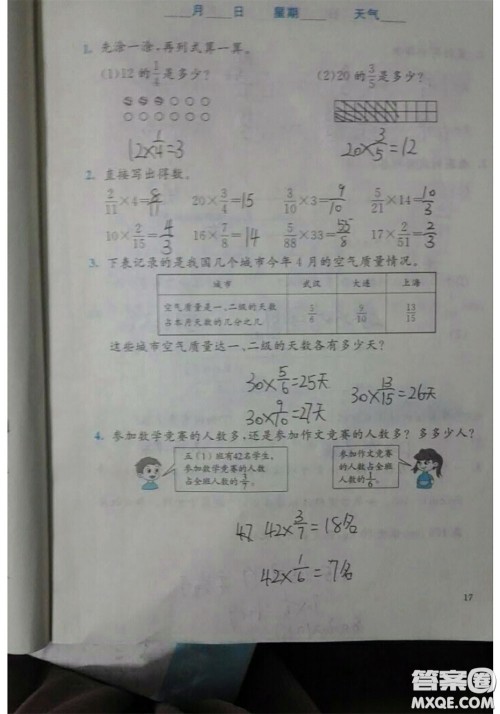 ____月____日 星期____ 天气____
1. 先涂一涂,再列式算一算。
(1)12的1/4是多少? (2)20的3/5是多少?
12×1/4=3 20×3/5=12
2. 直接写出得数。
2/11×4=8/11 20×3/4=15 3/10×3=9/10 5/21×14=10/3
10×2/15=4/3 16×7/8=14 5/88×33= 17×2/51=2/3
3. 下表记录的是我国几个城市今年4月的空气质量情况。
城市 武汉 大连 上海
空气质量是一、二级的天数
占本月天数的几分之几 5/6 9/10 13/15
这些城市空气质量达一、二级的天数各有多少天?
30×5/6=25天 30×13/15=26天
30×9/10=27天
4. 参加数学竞赛的人数多,还是参加作文竞赛的人数多?多多少人?
五(1)班有42名学生,
参加数学竞赛的人数
占全班人数的3/7。
参加作文竞赛
的人数占全班
人数的1/6。
42×3/7=18名
42×1/6=7名
17
答案圈
MXQE.COM